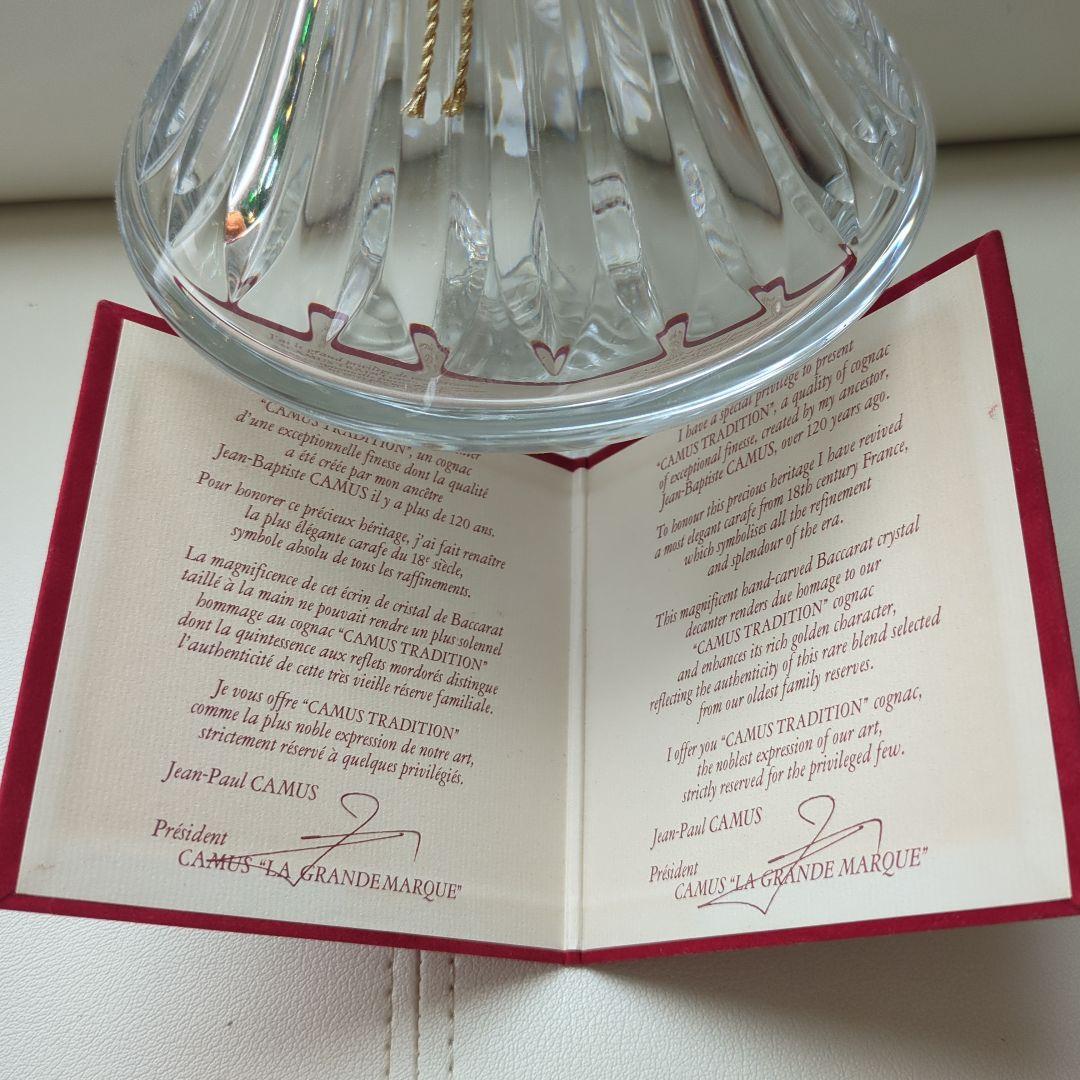 "CAMUS TRADITION", un cognac
d'une exceptionnelle finesse dont la qualité
a été créée par mon ancêtre
Jean-Baptiste CAMUS il y a plus de 120 ans.
Pour honorer ce précieux héritage, j'ai fait renaître
la plus élégante carafe du 18e siècle,
symbole absolu de tous les raffinements.
La magnificence de cet écrin de cristal de Baccarat
taillé à la main ne pouvait rendre un plus solennel
hommage au cognac "CAMUS TRADITION"
dont la quintessence aux reflets mordorés distingue
l'authenticité de cette très vieille réserve familiale.
Je vous offre "CAMUS TRADITION"
comme la plus noble expression de notre art,
strictement réservé à quelques privilégiés.
Jean-Paul CAMUS
Président
CAMUS "LA GRANDE MARQUE"
I have a special privilege to present
"CAMUS TRADITION", a quality of cognac
of exceptional finesse, created by my ancestor,
Jean-Baptiste CAMUS, over 120 years ago.
To honour this precious heritage I have revived
a most elegant carafe from 18th century France,
which symbolises all the refinement
and splendour of the era.
This magnificent hand-carved Baccarat crystal
decanter renders due homage to our
"CAMUS TRADITION" cognac
and enhances its rich golden character,
reflecting the authenticity of this rare blend selected
from our oldest family reserves.
I offer you "CAMUS TRADITION" cognac,
the noblest expression of our art,
strictly reserved for the privileged few.
Jean-Paul CAMUS
Président
CAMUS "LA GRANDE MARQUE"